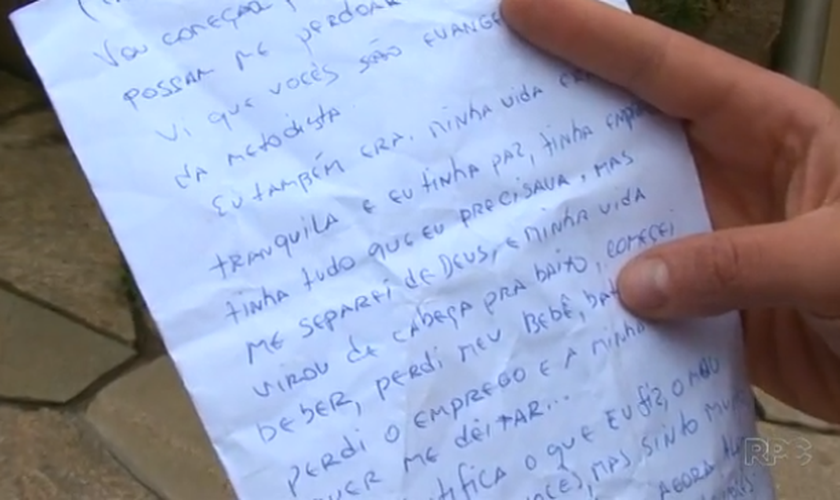 VOU COMEÇAR
POSSAM ME PERDOAR
VI QUE VOCÊS SÃO
DA METODISTA.
EU TAMBÉM ERA. MINHA VIDA ERA
TRANQUILA E EU TINHA PAZ, TINHA
TINHA TUDO QUE EU PRECISAVA, MAS
ME SEPAREI DE DEUS, E MINHA VIDA
VIROU DE CABEÇA PRA BAIXO, COMECEI
BEBER, PERDI MEU BEBÊ,
PERDI O EMPREGO E A MINHA
ME DEITAR...
O QUE EU FIZ, O MEU
MAS SINTO
AGORA
RPC